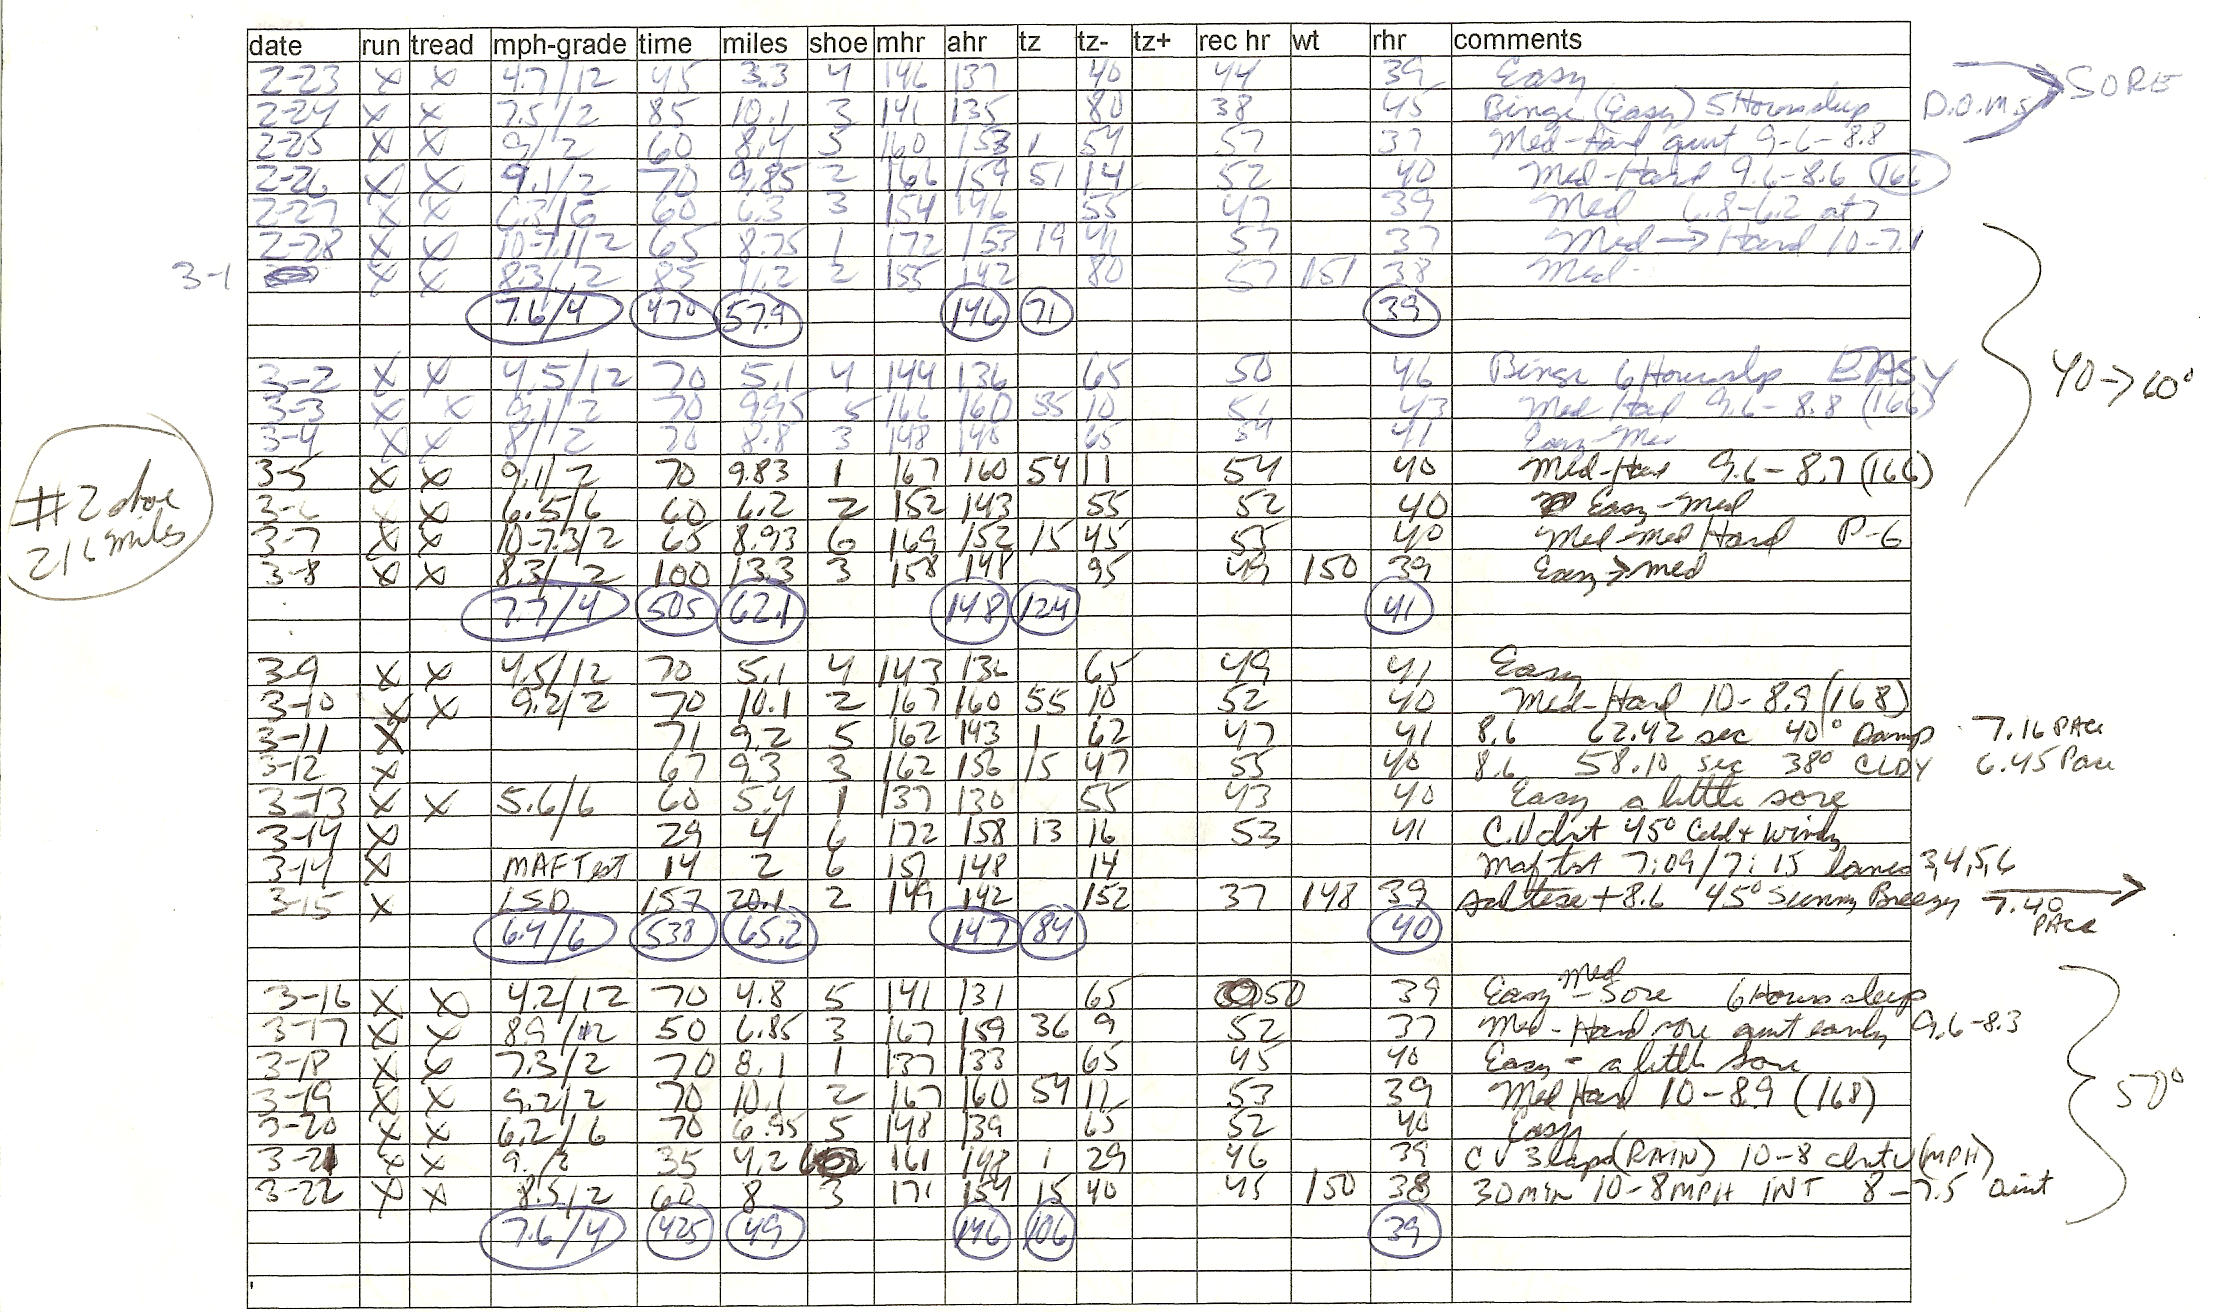 date run tread mph-grade time miles shoe mhr ahr tz tz- tz+ rec hr wt rhr comments
2-23 X X 4.7/12 45 3.3 4 146 137 40 44 39 Easy SORE
2-24 X X 7.5/2 85 10.1 3 141 135 80 38 45 Binge (Easy) 5 Hours slup D.O.M.S
2-25 X X 9/2 60 8.4 5 160 153 1 54 57 37 Med-Hard 9.6-8.8
2-26 X X 9.1/2 70 9.85 2 166 159 51 14 52 40 Med-Hard 9.6-8.6 (166)
2-27 X X 6.3/6 60 6.3 3 154 146 55 47 39 Med 6.8-6.2 at 7
2-28 X X 10-7.1/2 65 8.75 1 172 153 19 41 57 37 Med → Hard 10-7.1
3-1 X X 8.3/2 85 11.2 2 155 142 80 57 151 38 Med
7.6/4 470 57.9 146 71 39
3-2 X X 4.5/12 70 5.1 4 144 136 65 50 46 Binge 6 Hours slp EASY
40→60°
3-3 X X 9.1/2 70 9.95 5 166 160 55 10 51 43 Med Hard 9.6-8.8 (166)
3-4 X X 8/2 70 8.8 3 148 140 65 54 41 Easy-Med
3-5 X X 9.1/2 70 9.83 1 167 160 54 11 54 40 Med-Hard 9.6-8.7 (166)
#2 shoe
216 miles
3-6 X X 6.5/6 60 6.2 2 152 143 55 52 40 Easy-Med
3-7 X X 10-7.3/2 65 8.93 6 169 152 15 45 55 40 Med-Med Hard P-6
3-8 X X 8.3/2 100 13.3 3 158 148 95 49 150 39 Easy→med
7.7/4 505 62.1 148 124 41
3-9 X X 4.5/12 70 5.1 4 143 136 65 49 41 Easy
3-10 X X 9.2/2 70 10.1 2 167 160 55 10 52 40 Med-Hard 10-8.9 (168)
3-11 X 71 9.2 5 162 143 1 62 47 41 8.6 62.42 sec 40° Damp 7.16 PAce
3-12 X 67 9.3 3 162 156 15 47 55 40 8.6 58.10 sec 38° CLDY 6.45 Pace
3-13 X X 5.6/6 60 5.4 1 137 130 55 43 40 Easy a little sore
3-14 X 29 4 6 172 158 13 16 53 41 C.V 45° Cold + Windy
3-14 X MAF Test 14 2 6 151 148 14 Maf tst 7:09/7:15 lanes 3,4,5,6
3-15 X LSD 157 20.1 2 149 142 152 37 148 39 + 8.6 45° Sunny Breezy 7.40 PAce
6.4/6 538 65.2 147 84 40
3-16 X X 4.2/12 70 4.8 5 141 131 65 50 39 Easy-Med Sore 6 Hours sleep
3-17 X X 8.9/2 50 6.85 3 167 159 36 9 52 37 Med-Hard sore quit early 9.6-8.3
3-18 X X 7.3/2 70 8.1 1 137 133 65 45 40 Easy - a little Sore
3-19 X X 9.2/2 70 10.1 2 167 160 54 11 53 39 Med Hard 10-8.9 (168)
50°
3-20 X X 6.2/6 70 6.95 5 148 139 65 52 40 Easy
3-21 X X 9./2 35 4.2 6 161 148 1 29 46 39 CV 3 laps (RAIN) 10-8 (MPH)
3-22 X X 8.5/2 60 8 3 171 154 15 40 45 150 38 30 min 10-8 MPH INT 8-7.5
7.6/4 425 49 146 106 39